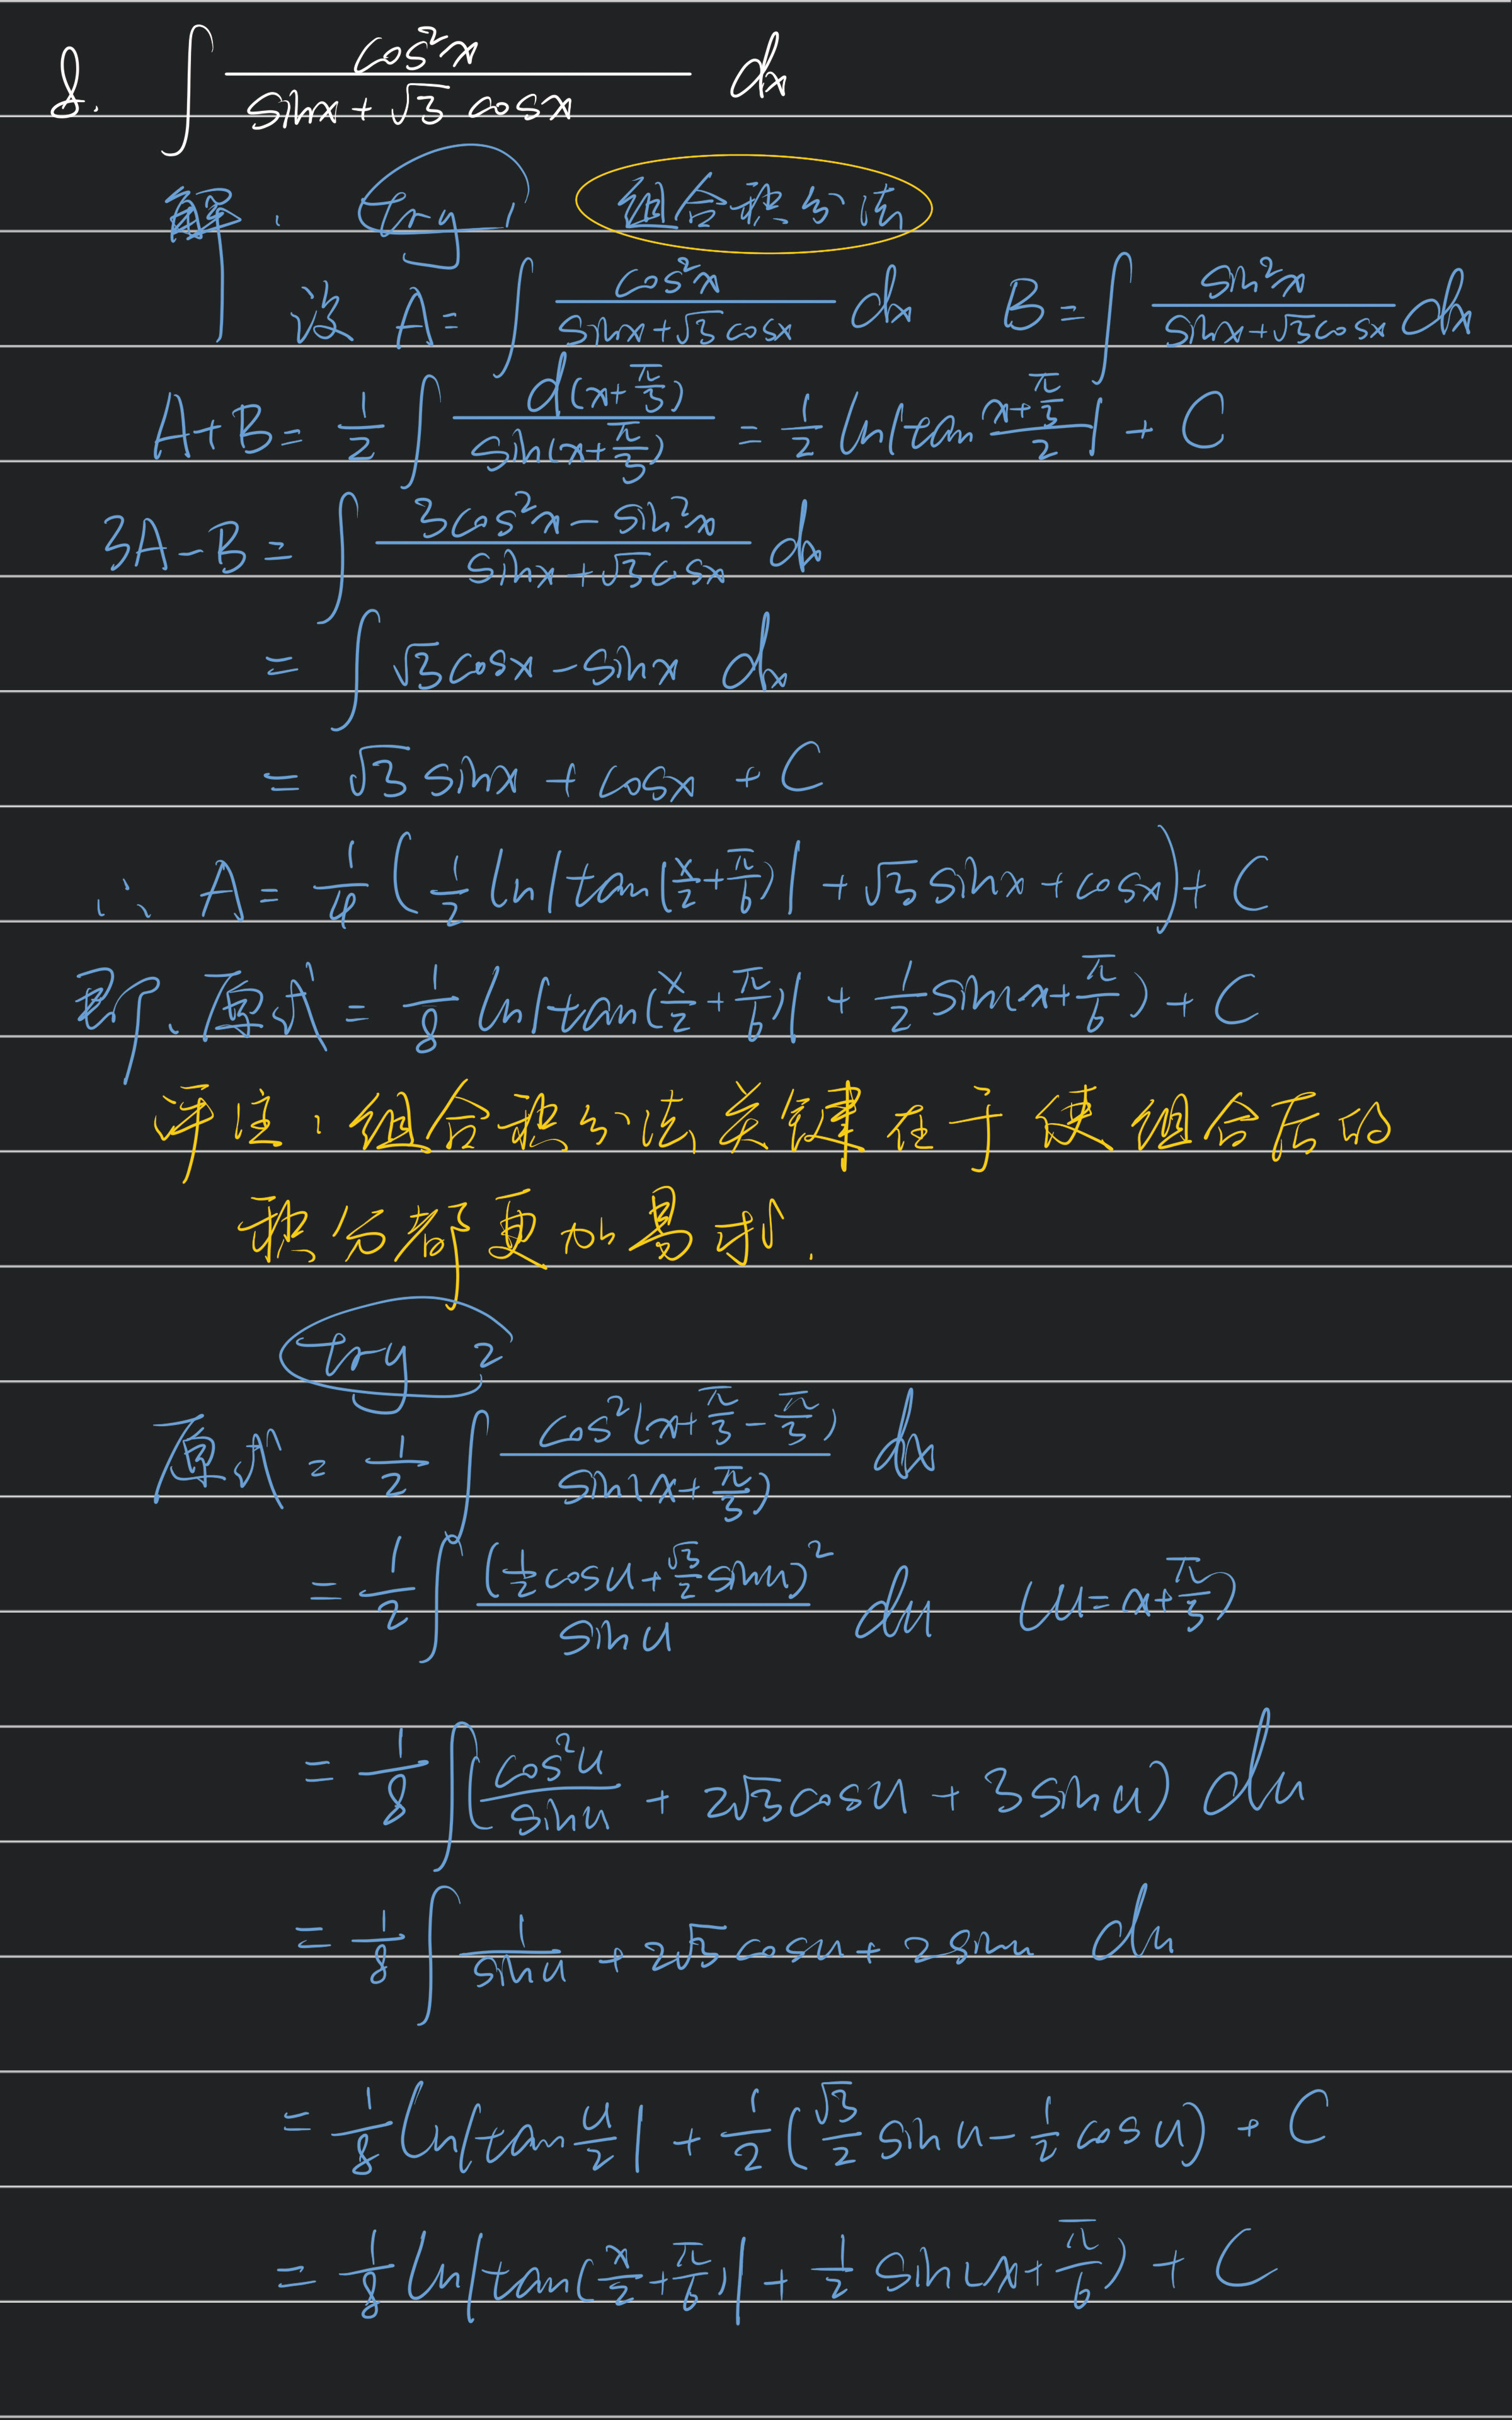 8. ∫ cos²x / (sinx+√3 cosx) dx
解: try 1 组合积分法
设 A= ∫ cos²x / (sinx+√3cosx) dx B= ∫ sin²x / (sinx+√3cosx) dx
A+B= 1/2 ∫ d(x+π/3) / sin(x+π/3) = 1/2 ln|tan (x+π/3)/2| + C
3A-B= ∫ (3cos²x - sin²x) / (sinx+√3cosx) dx
= ∫ √3cosx - sinx dx
= √3 sinx + cosx + C
∴ A= 1/4 (1/2 ln|tan(x/2+π/6)| + √3 sinx + cosx) + C
即. 原式 = 1/8 ln|tan(x/2+π/6)| + 1/2 sin(x+π/6) + C
评注: 组合积分法关键在于使组合后的
积分都更加易求.
try 2
原式 = 1/2 ∫ cos²(x+π/3-π/3) / sin(x+π/3) dx
= 1/2 ∫ (1/2 cosu + √3/2 sinu)² / sinu du (u=x+π/3)
= 1/8 ∫ (cos²u/sinu + 2√3cosu + 3sinu) du
= 1/8 ∫ 1/sinu + 2√3cosu + 2sinu du
= 1/8 ln|tan u/2| + 1/2 (√3/2 sinu - 1/2 cosu) + C
= 1/8 ln|tan(x/2+π/6)| + 1/2 sin(x+π/6) + C